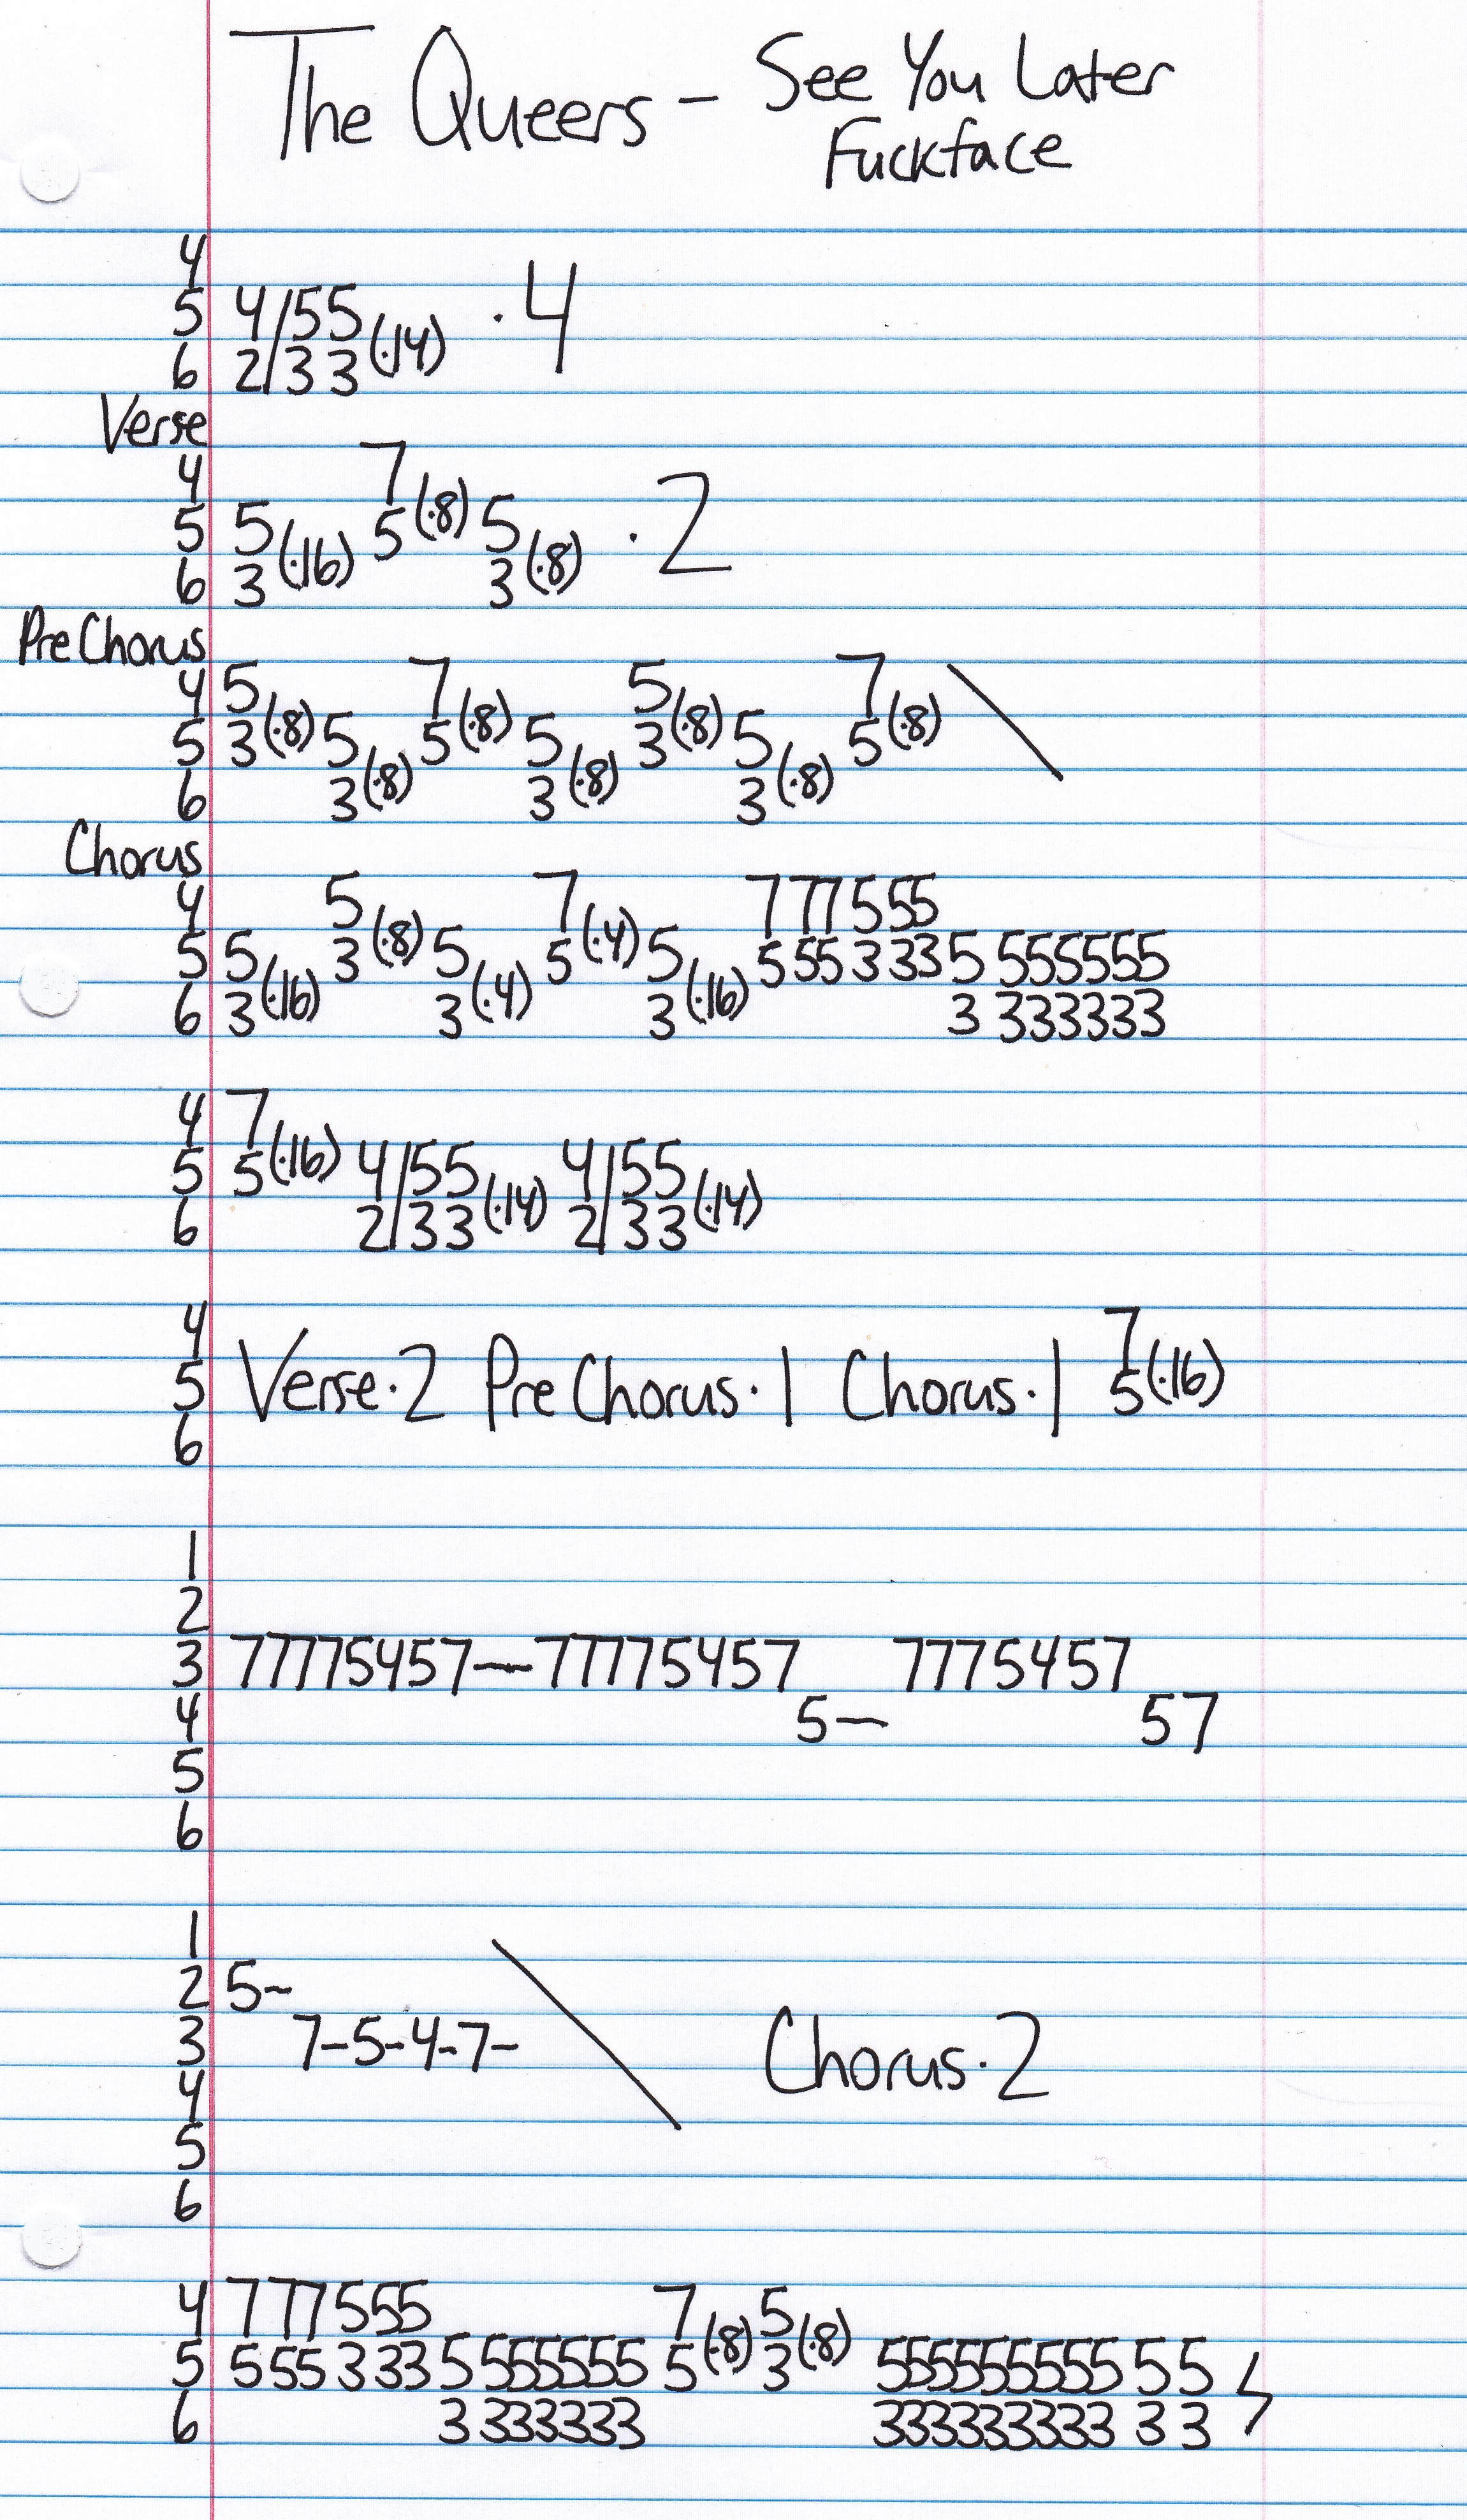 The Queers - See You Later
Fuckface
4
5 4/55 (·14) ·4
6 2/33
Verse
4 7
5 5 (·16) 5 (·8) 5 ·2
6 3 3 (·8)
Pre Chorus
4 5 7 5 7 \
5 3 (·8) 5 5 (·8) 5 3 (·8) 5 5 (·8)
6 3 (·8) 3 (·8) 3 (·8)
Chorus
4 5 7 7 77 5 55
5 5 3 (·8) 5 5 (·4) 5 5 55 3 33 5 555555
6 3 (·16) 3 (·4) 3 (·16) 3 333333
4 7
5 5 (·16) 4/55 4/55
6 2/33 (·14) 2/33 (·14)
4 7
5 Verse·2 Pre Chorus·1 Chorus·1 5 (·16)
6
1
2
3 77775457--77775457 7775457
4 5- 57
5
6
1
2 5~
3 7-5-4-7- \ Chorus·2
4
5
6
4 7 77 5 55 7 5
5 5 55 3 33 5 555555 5 (·8) 3 (·8) 555555555 5 5
6 3 333333 333333333 3 3